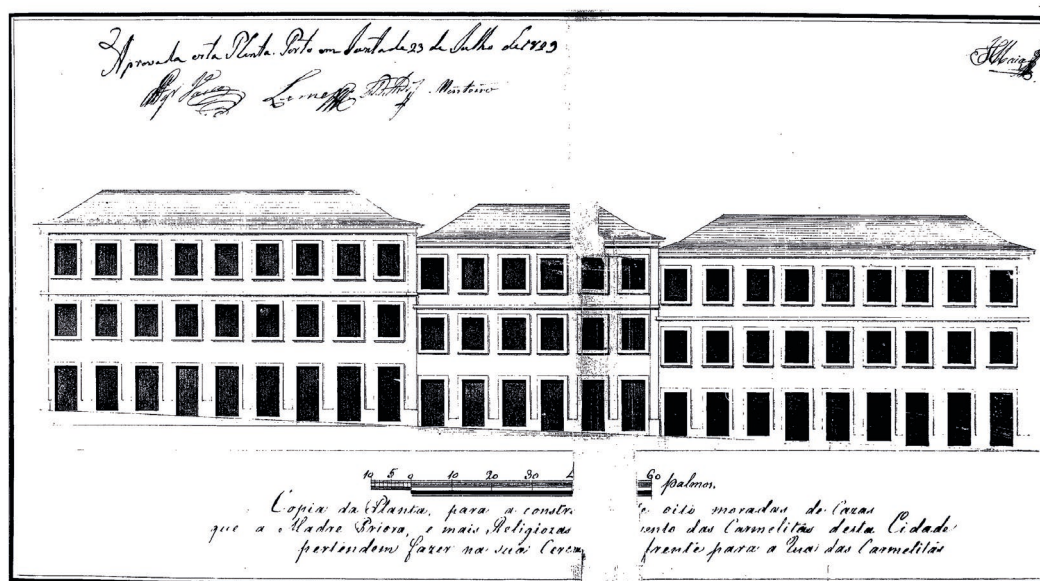 Aprovada esta Planta. Porto em Junta de 23 de Julho de 1789
Lemos Monteiro
10 5 0 10 20 30 60 palmos.
Copia da Planta, para a constr oito moradas de Cazas
que a Madre Priora, e mais Religiozas ento das Carmelitas desta Cidade
pertendem fazer na sua Cerca frente para a Rua das Carmelitas